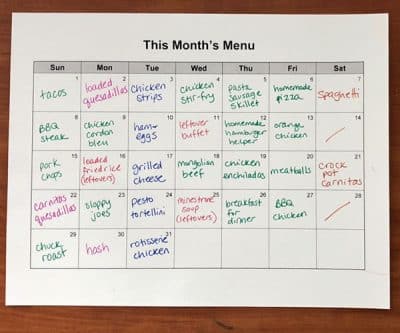 This Month's Menu
Sun Mon Tue Wed Thu Fri Sat
1
tacos
2
loaded
quesadillas
3
chicken
strips
4
chicken
stir-fry
5
pasta
sausage
skillet
6
homemade
pizza
7
Spaghetti
8
BBQ
steak
9
chicken
cordon
bleu
10
ham-
eggs
11
leftover
buffet
12
homemade
hamburger
helper
13
orange
chicken
14
15
pork
chops
16
loaded
fried rice
(leftovers)
17
grilled
cheese
18
mongolian
beef
19
chicken
enchiladas
20
meatballs
21
crock
pot
carnitas
22
carnitas
quesadillas
23
sloppy
joes
24
pesto
tortellini
25
minestrone
soup
(leftovers)
26
breakfast
for
dinner
27
BBQ
chicken
28
29
chuck
roast
30
hash
31
rotisserie
chicken